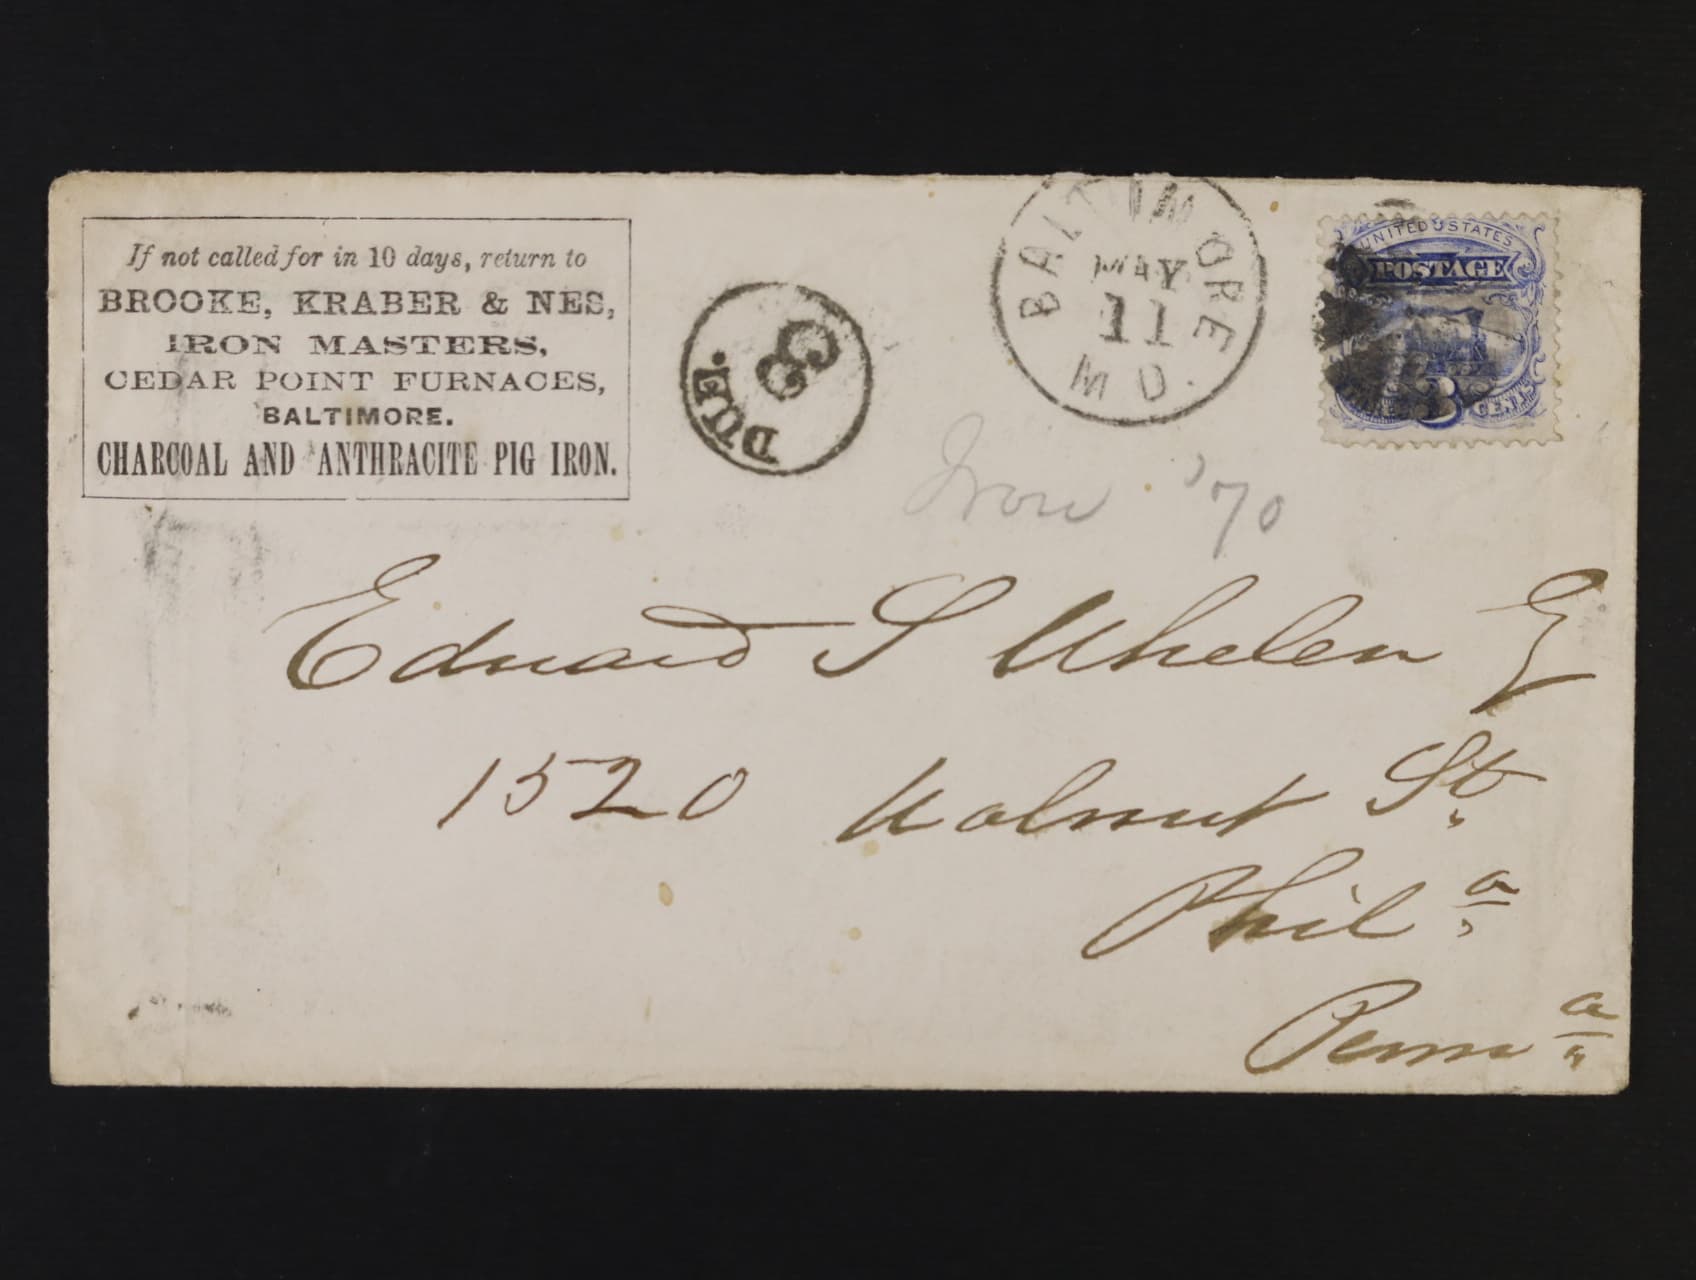 If not called for in 10 days, return to
BROOKE, KRABER & NES,
IRON MASTERS,
CEDAR POINT FURNACES,
BALTIMORE.
CHARCOAL AND ANTHRACITE PIG IRON.
DUE. 3
BALTIMORE
MAY
11
MD.
UNITED STATES
POSTAGE
3
CENTS
Iron '70
Edward S Whelen
1520 Walnut St.
Phila
Penna